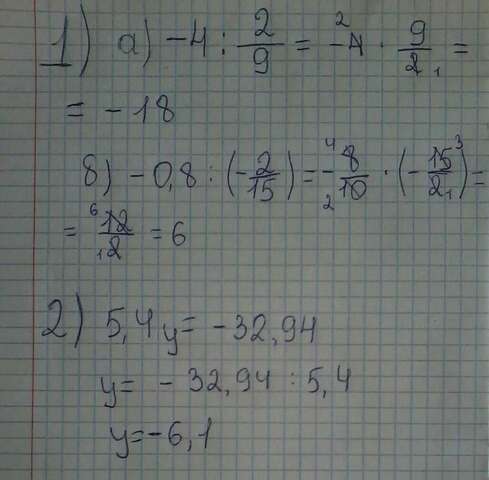 1) а) -4 : 2/9 = -4² · 9/2₁ =
= -18
б) -0,8 : (-2/15) = -⁴8/₂10 · (-15³/2₁) =
= ⁶12/₁2 = 6
2) 5,4y = -32,94
y = -32,94 : 5,4
y = -6,1